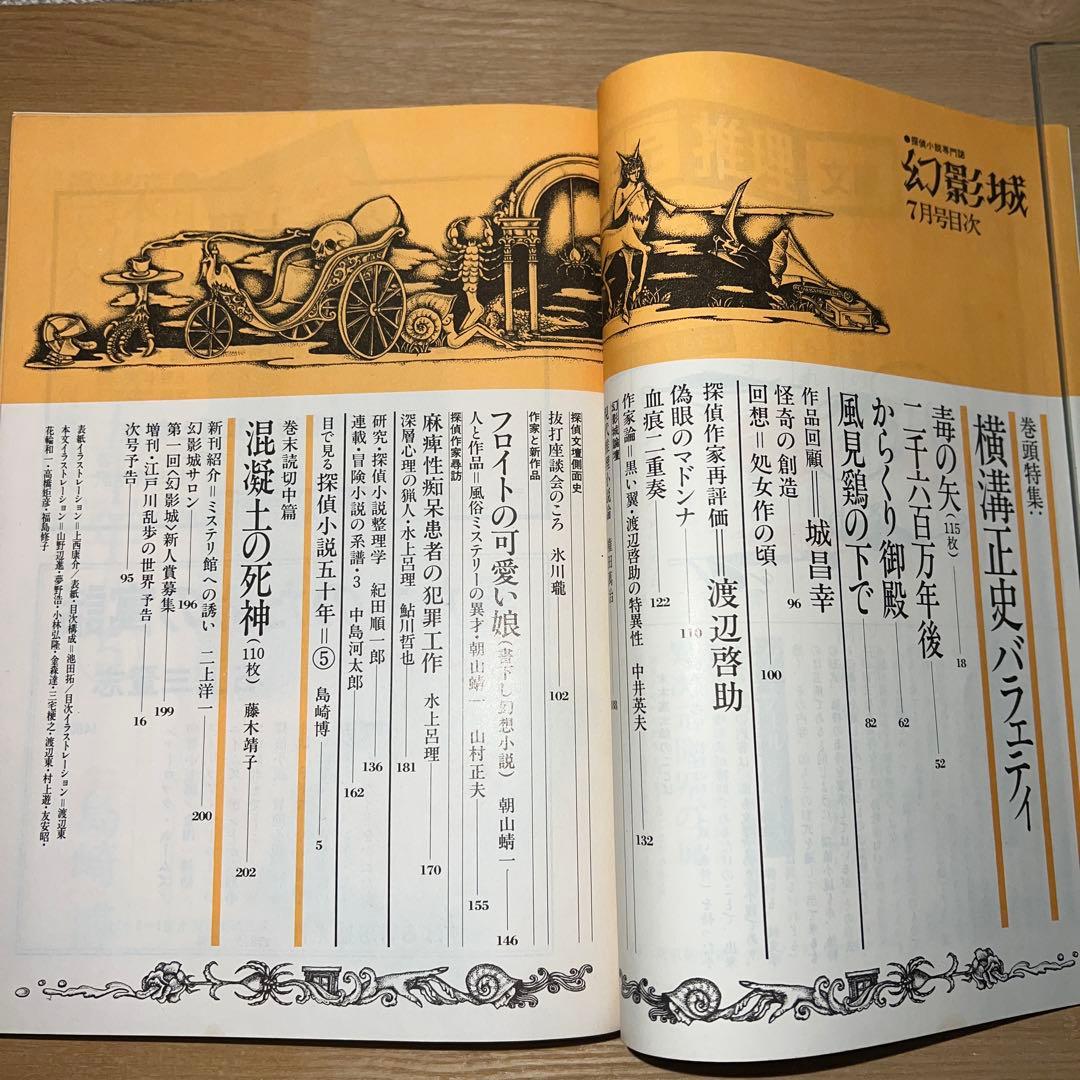 ●探偵小説専門誌
幻影城
7月号目次
巻頭特集:
横溝正史バラエティ
毒の矢(115枚) 18
二千六百万年後 52
からくり御殿 62
風見鶏の下で 82
作品回顧=城昌幸
怪奇の創造 96
回想=処女作の頃 100
探偵作家再評価=渡辺啓助
偽眼のマドンナ 110
血痕二重奏 122
作家論=黒い翼・渡辺啓助の特異性 中井英夫 132
幻影城論壇
探偵文壇側面史
抜打座談会のころ 氷川瓏 102
作家と新作品
フロイトの可愛い娘(書下し幻想小説) 朝山蜻一 146
人と作品=風俗ミステリーの異才・朝山蜻一 山村正夫 155
探偵作家尋訪
麻痺性痴呆患者の犯罪工作 水上呂理 170
深層心理の猟人・水上呂理 鮎川哲也 181
研究・探偵小説整理学 紀田順一郎 136
連載・冒険小説の系譜・3 中島河太郎 162
目で見る探偵小説五十年=⑤ 島崎博 5
巻末読切中篇
混凝土の死神(110枚) 藤木靖子 202
新刊紹介=ミステリ館への誘い 二上洋一 200
幻影城サロン 196
第一回〈幻影城〉新人賞募集 199
増刊・江戸川乱歩の世界 予告 16
次号予告 95
表紙イラストレーション=上西康介/表紙・目次構成=池田拓/目次イラストレーション=渡辺東
本文イラストレーション=山野辺進・夢野浩・小林弘隆・金森達・三宅榛之・渡辺東・村上遊・友安昭・
花輪和一・高橋鉅彦・福島修子